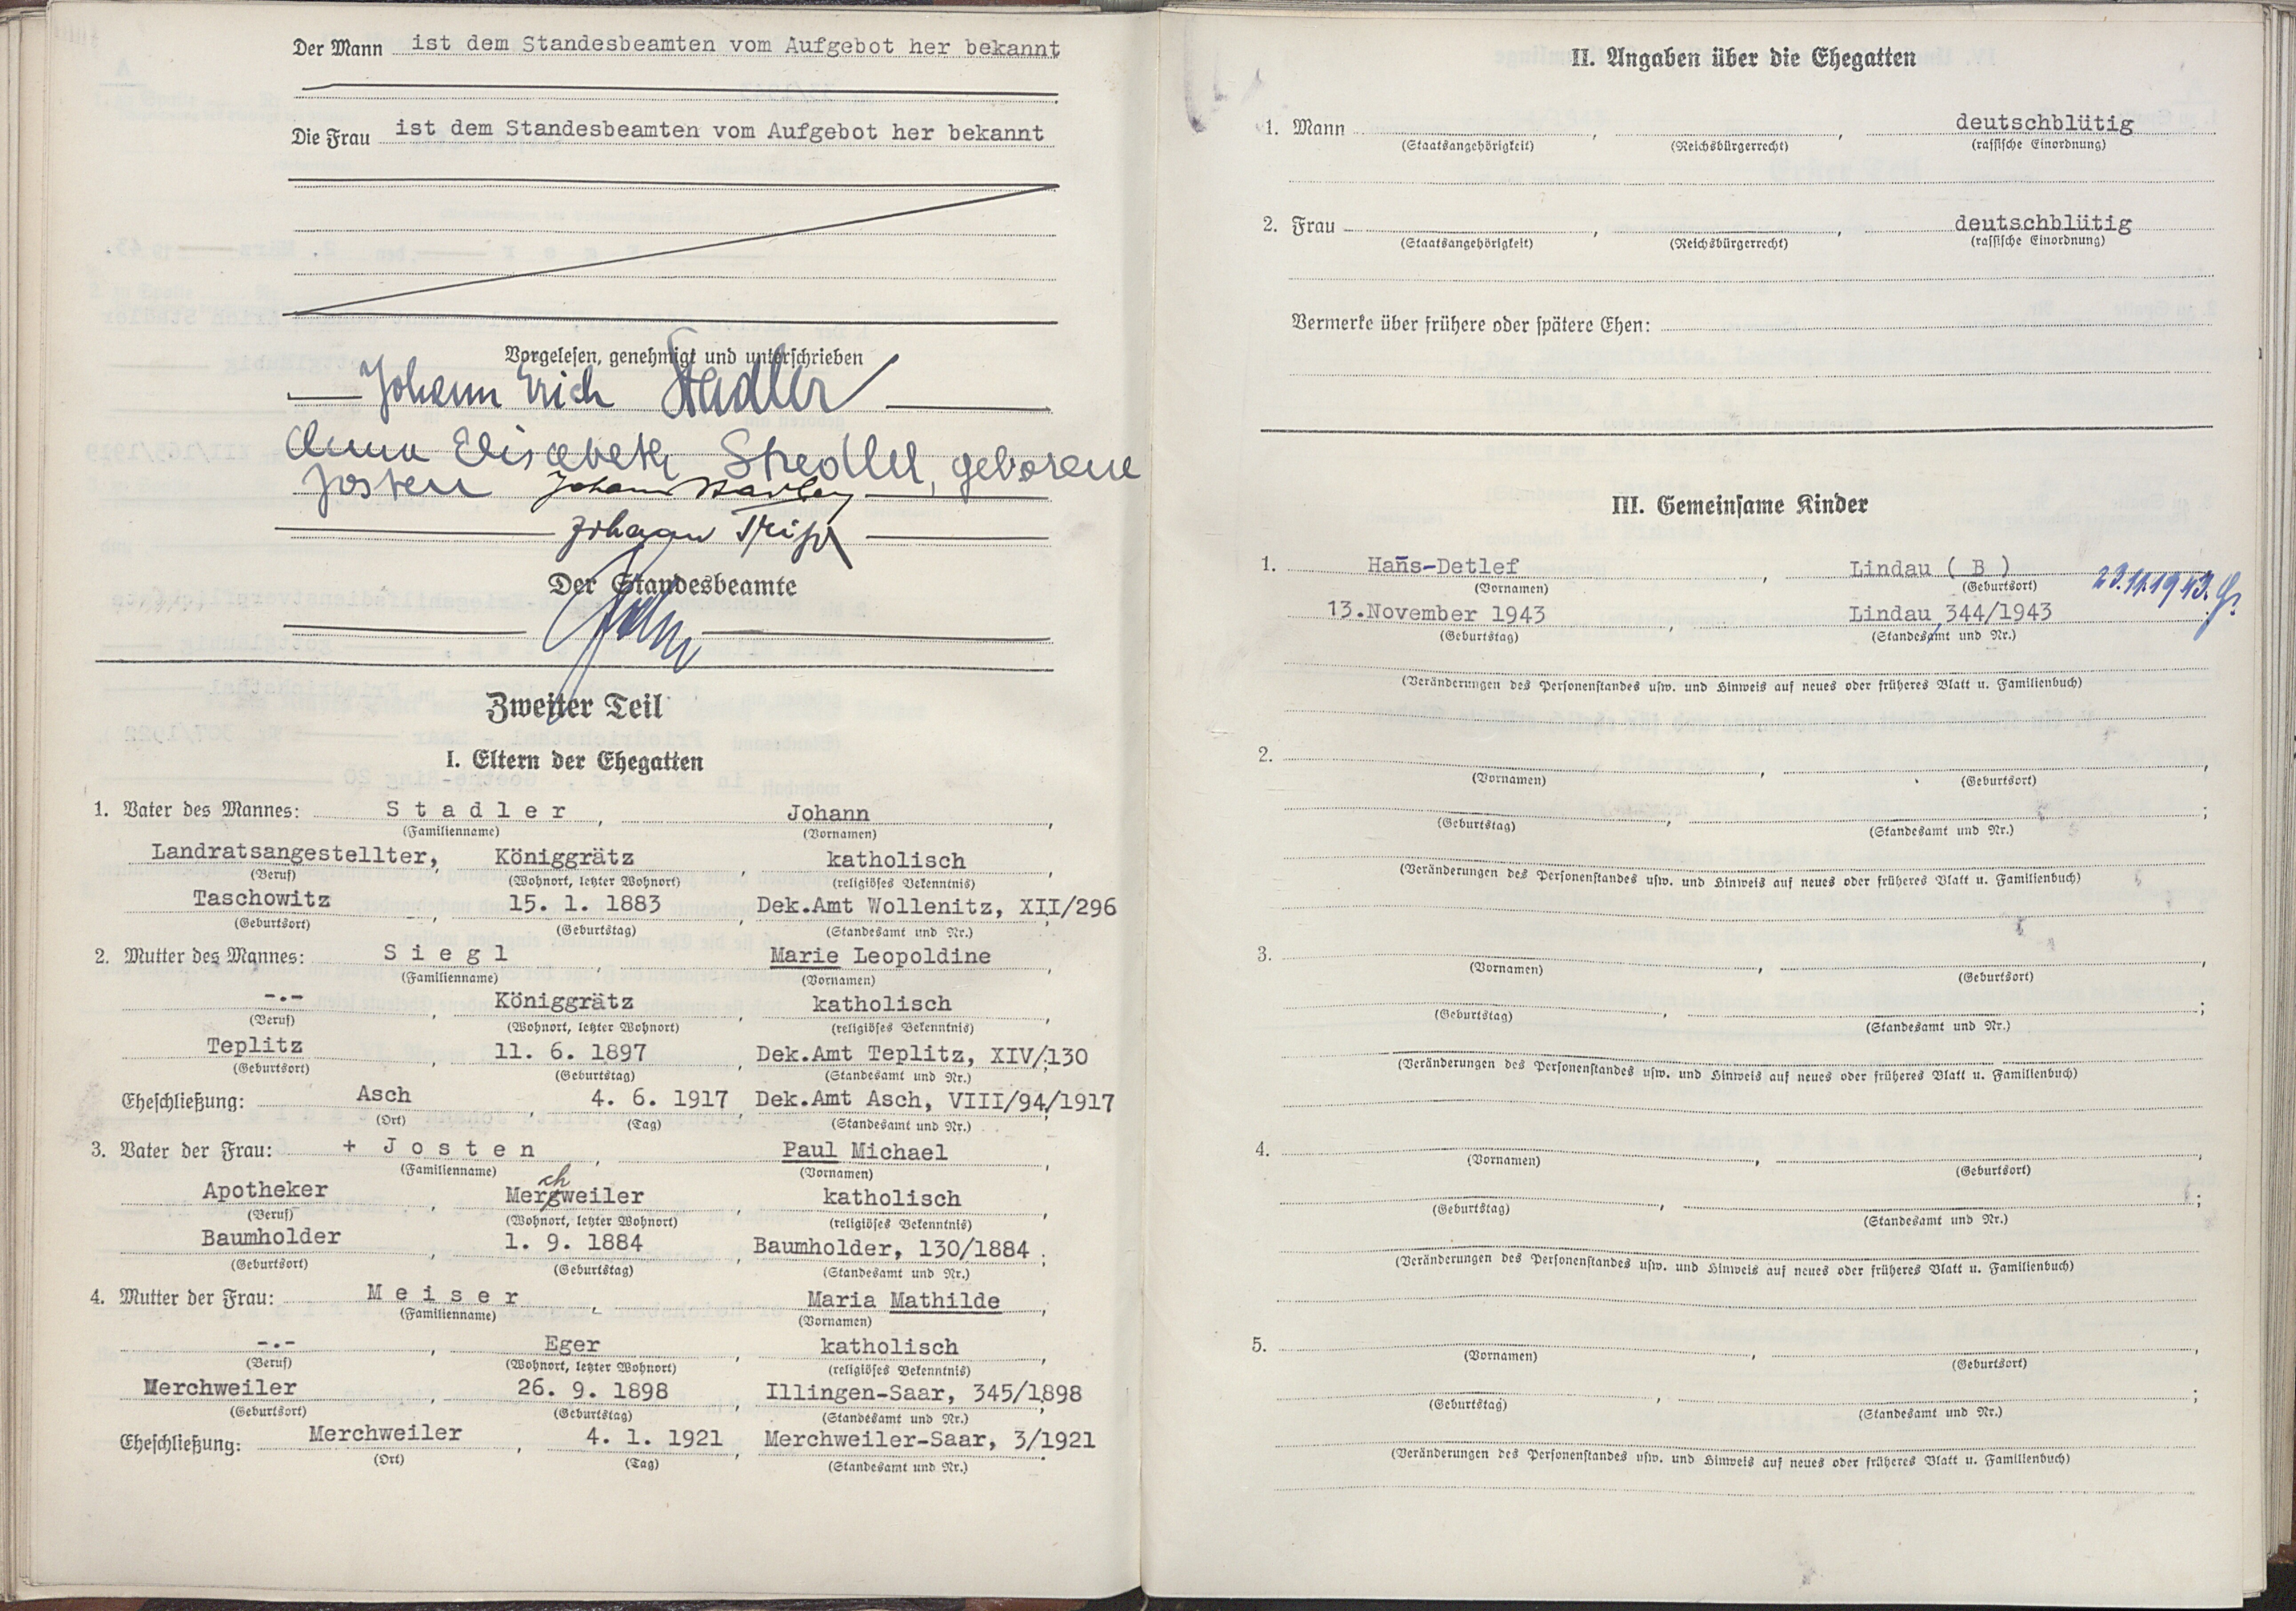 Der Mann ist dem Standesbeamten vom Aufgebot her bekannt
Die Frau ist dem Standesbeamten vom Aufgebot her bekannt
Vorgelesen, genehmigt und unterschrieben
Johann Erich Stadler
Anna Elisabeth Stadler, geborene
Josten Johann Stadler
Johann
Der Standesbeamte
Zweiter Teil
I. Eltern der Ehegatten
1. Vater des Mannes: Stadler, Johann,
(Familienname) (Vornamen)
Landratsangestellter, Königgrätz, katholisch,
(Beruf) (Wohnort, letzter Wohnort) (religiöses Bekenntnis)
Taschowitz, 15. 1. 1883, Dek.Amt Wollenitz, XII/296;
(Geburtsort) (Geburtstag) (Standesamt und Nr.)
2. Mutter des Mannes: Siegl, Marie Leopoldine,
(Familienname) (Vornamen)
-.-, Königgrätz, katholisch,
(Beruf) (Wohnort, letzter Wohnort) (religiöses Bekenntnis)
Teplitz, 11. 6. 1897, Dek.Amt Teplitz, XIV/130;
(Geburtsort) (Geburtstag) (Standesamt und Nr.)
Eheschließung: Asch, 4. 6. 1917, Dek.Amt Asch, VIII/94/1917
(Ort) (Tag) (Standesamt und Nr.)
3. Vater der Frau: + Josten, Paul Michael,
(Familienname) (Vornamen)
ch
Apotheker, Mergweiler, katholisch,
(Beruf) (Wohnort, letzter Wohnort) (religiöses Bekenntnis)
Baumholder, 1. 9. 1884, Baumholder, 130/1884;
(Geburtsort) (Geburtstag) (Standesamt und Nr.)
4. Mutter der Frau: Meiser, Maria Mathilde,
(Familienname) (Vornamen)
-.-, Eger, katholisch,
(Beruf) (Wohnort, letzter Wohnort) (religiöses Bekenntnis)
Merchweiler, 26. 9. 1898, Illingen-Saar, 345/1898;
(Geburtsort) (Geburtstag) (Standesamt und Nr.)
Eheschließung: Merchweiler, 4. 1. 1921, Merchweiler-Saar, 3/1921.
(Ort) (Tag) (Standesamt und Nr.)
II. Angaben über die Ehegatten
1. Mann, , deutschblütig
(Staatsangehörigkeit) (Reichsbürgerrecht) (rassische Einordnung)
2. Frau, , deutschblütig
(Staatsangehörigkeit) (Reichsbürgerrecht) (rassische Einordnung)
Vermerke über frühere oder spätere Ehen:
III. Gemeinsame Kinder
1. Hans-Detlef, Lindau ( B )
(Vornamen) (Geburtsort) 23.11.1943.
13.November 1943, Lindau, 344/1943
(Geburtstag) (Standesamt und Nr.)
(Veränderungen des Personenstandes usw. und Hinweis auf neues oder früheres Blatt u. Familienbuch)
2. , ,
(Vornamen) (Geburtsort)
, ;
(Geburtstag) (Standesamt und Nr.)
(Veränderungen des Personenstandes usw. und Hinweis auf neues oder früheres Blatt u. Familienbuch)
3. , ,
(Vornamen) (Geburtsort)
, ;
(Geburtstag) (Standesamt und Nr.)
(Veränderungen des Personenstandes usw. und Hinweis auf neues oder früheres Blatt u. Familienbuch)
4. , ,
(Vornamen) (Geburtsort)
, ;
(Geburtstag) (Standesamt und Nr.)
(Veränderungen des Personenstandes usw. und Hinweis auf neues oder früheres Blatt u. Familienbuch)
5. , ,
(Vornamen) (Geburtsort)
, ;
(Geburtstag) (Standesamt und Nr.)
(Veränderungen des Personenstandes usw. und Hinweis auf neues oder früheres Blatt u. Familienbuch)